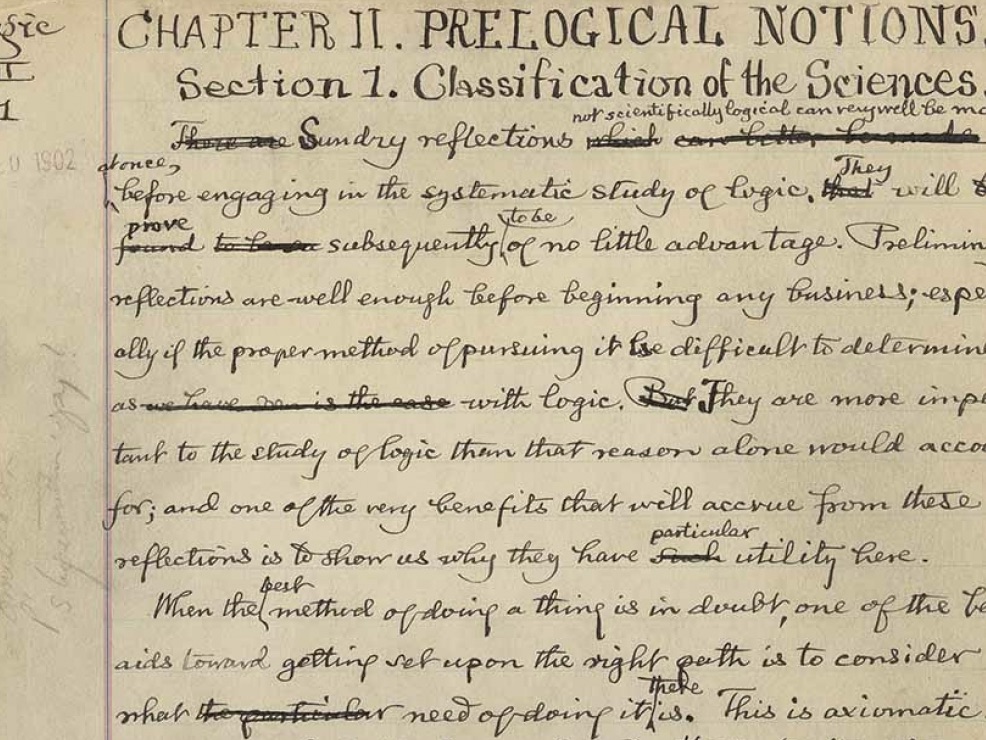 gic
I
1
CHAPTER II. PRELOGICAL NOTIONS.
Section 1. Classification of the Sciences.
not scientifically logical can very well be ma
There are Sundry reflections which can better be made
at once,
They
before engaging in the systematic study of logic. that will
prove
to be
found subsequently of no little advantage. Prelimin
reflections are well enough before beginning any business; espe
ally if the proper method of pursuing it be difficult to determine
as we have is the case with logic. But They are more impo
tant to the study of logic than that reason alone would acco
for; and one of the very benefits that will accrue from these
particular
reflections is to show us why they have such utility here.
best
When the method of doing a thing is in doubt, one of the be
aids toward getting set upon the right path is to consider
there
what the particular need of doing it is. This is axiomatic.
1902